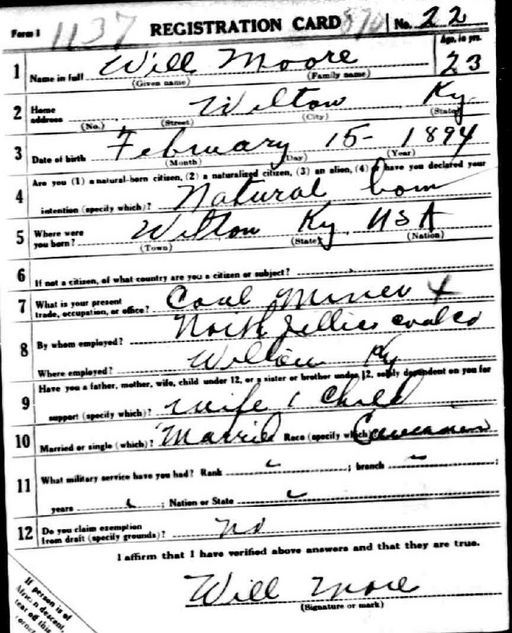 Form 1 1137 REGISTRATION CARD 870 No. 22
Age, in yrs.
1 Name in full Will Moore 23
(Given name) (Family name)
2 Home address Wilton Ky
(No.) (Street) (City) (State)
3 Date of birth February 15- 1894
(Month) (Day) (Year)
4 Are you (1) a natural-born citizen, (2) a naturalized citizen, (3) an alien, (4) or have you declared your
intention (specify which)? Natural born
5 Where were you born? Wilton Ky USA
(Town) (State) (Nation)
6 If not a citizen, of what country are you a citizen or subject?
7 What is your present trade, occupation, or office? Coal Miner x
8 By whom employed? North Jellico coal co
Where employed? Wilton Ky
9 Have you a father, mother, wife, child under 12, or a sister or brother under 12, solely dependent on you for
support (specify which)? wife 1 Child
10 Married or single (which)? Married Race (specify which)? Caucasian
11 What military service have you had? Rank ; branch ;
years ; Nation or State
12 Do you claim exemption from draft (specify grounds)? No
I affirm that I have verified above answers and that they are true.
Will More
(Signature or mark)
If person is of
African descent,
tear off this
corner